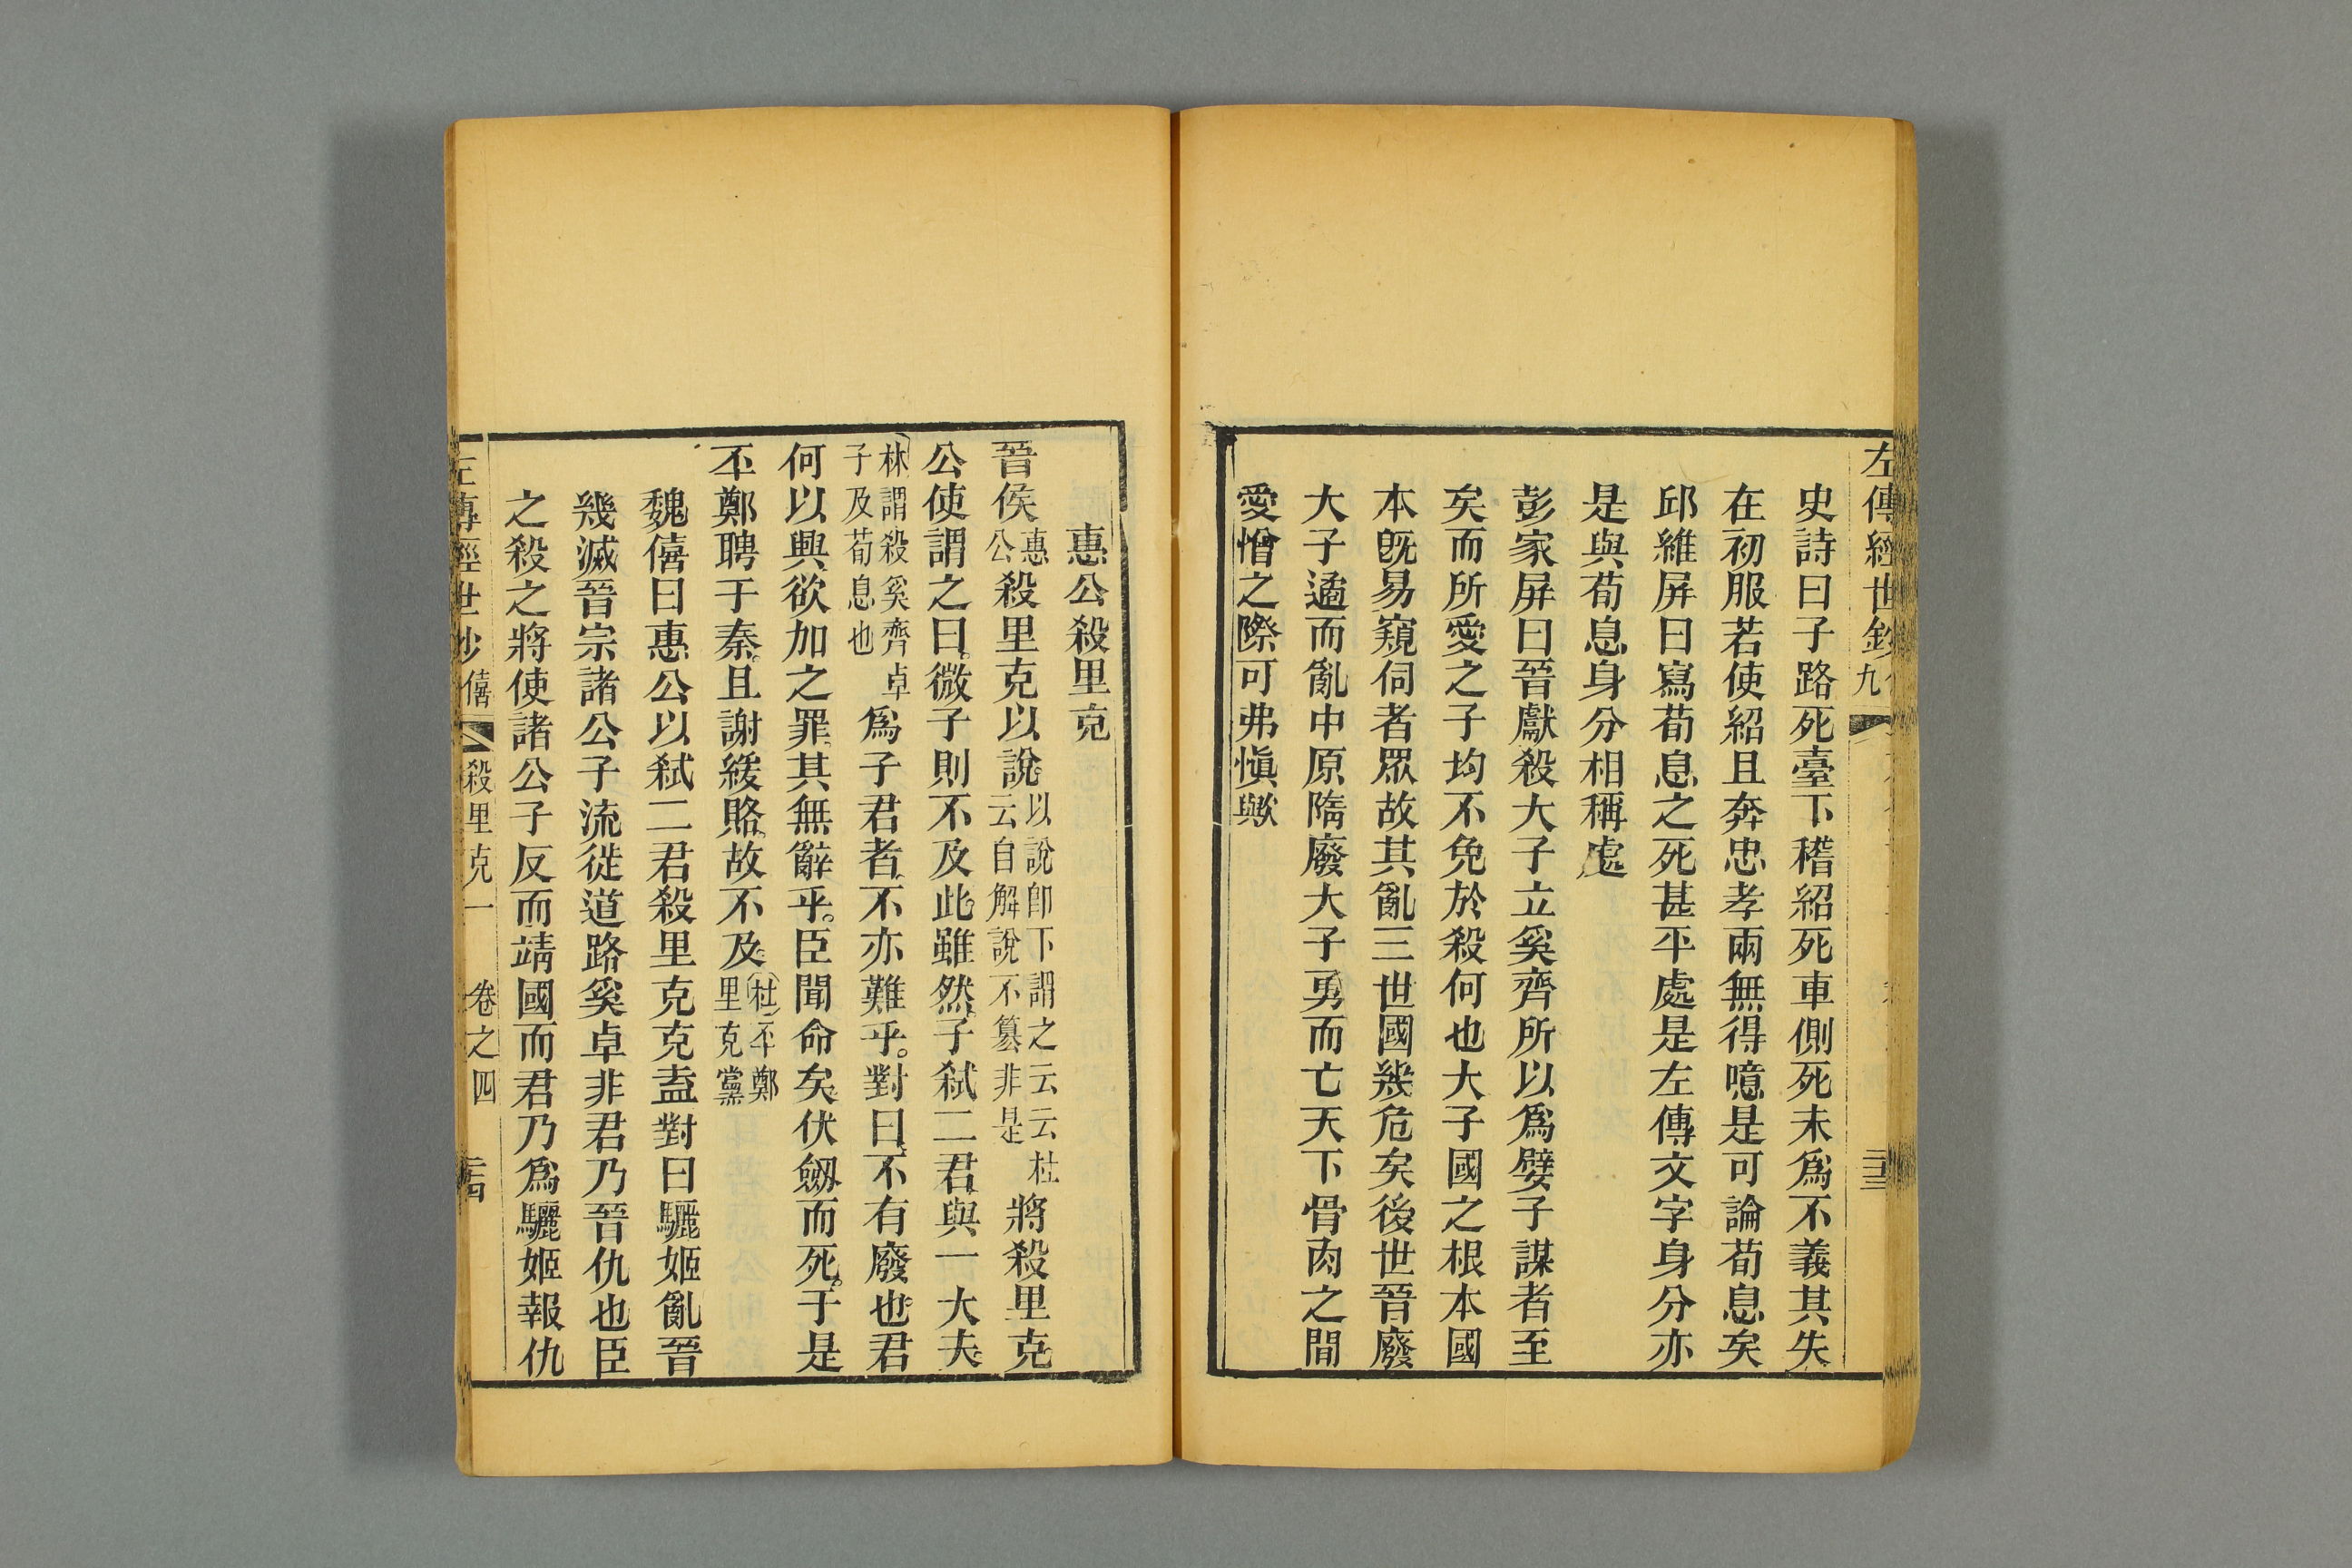 左傳經世鈔 九 二十三
史詩曰子路死臺下稽紹死車側死未爲不義其失
在初服若使紹且奔忠孝兩無得噫是可論荀息矣
邱維屏曰寫荀息之死甚平處是左傳文字身分亦
是與荀息身分相稱處
彭家屏曰晉獻殺大子立奚齊所以爲嬖子謀者至
矣而所愛之子均不免於殺何也大子國之根本國
本既易窺伺者眾故其亂三世國幾危矣後世晉廢
大子遹而亂中原隋廢大子勇而亡天下骨肉之間
愛憎之際可弗愼歟
惠公殺里克
晉侯惠公殺里克以說以說卽下謂之云云杜云自解說不篡非是將殺里克
公使謂之曰微子則不及此雖然子弑二君與一大夫
林謂殺奚齊卓子及荀息也爲子君者不亦難乎對曰不有廢也君
何以興欲加之罪其無辭乎臣聞命矣伏劒而死于是
丕鄭聘于秦且謝緩賂故不及杜丕鄭里克黨
魏僖曰惠公以弑二君殺里克克盍對曰驪姬亂晉
幾滅晉宗諸公子流從道路奚卓非君乃晉仇也臣
之殺之將使諸公子反而靖國而君乃爲驪姬報仇
左傳經世鈔 僖 殺里克一 卷之四 二十四